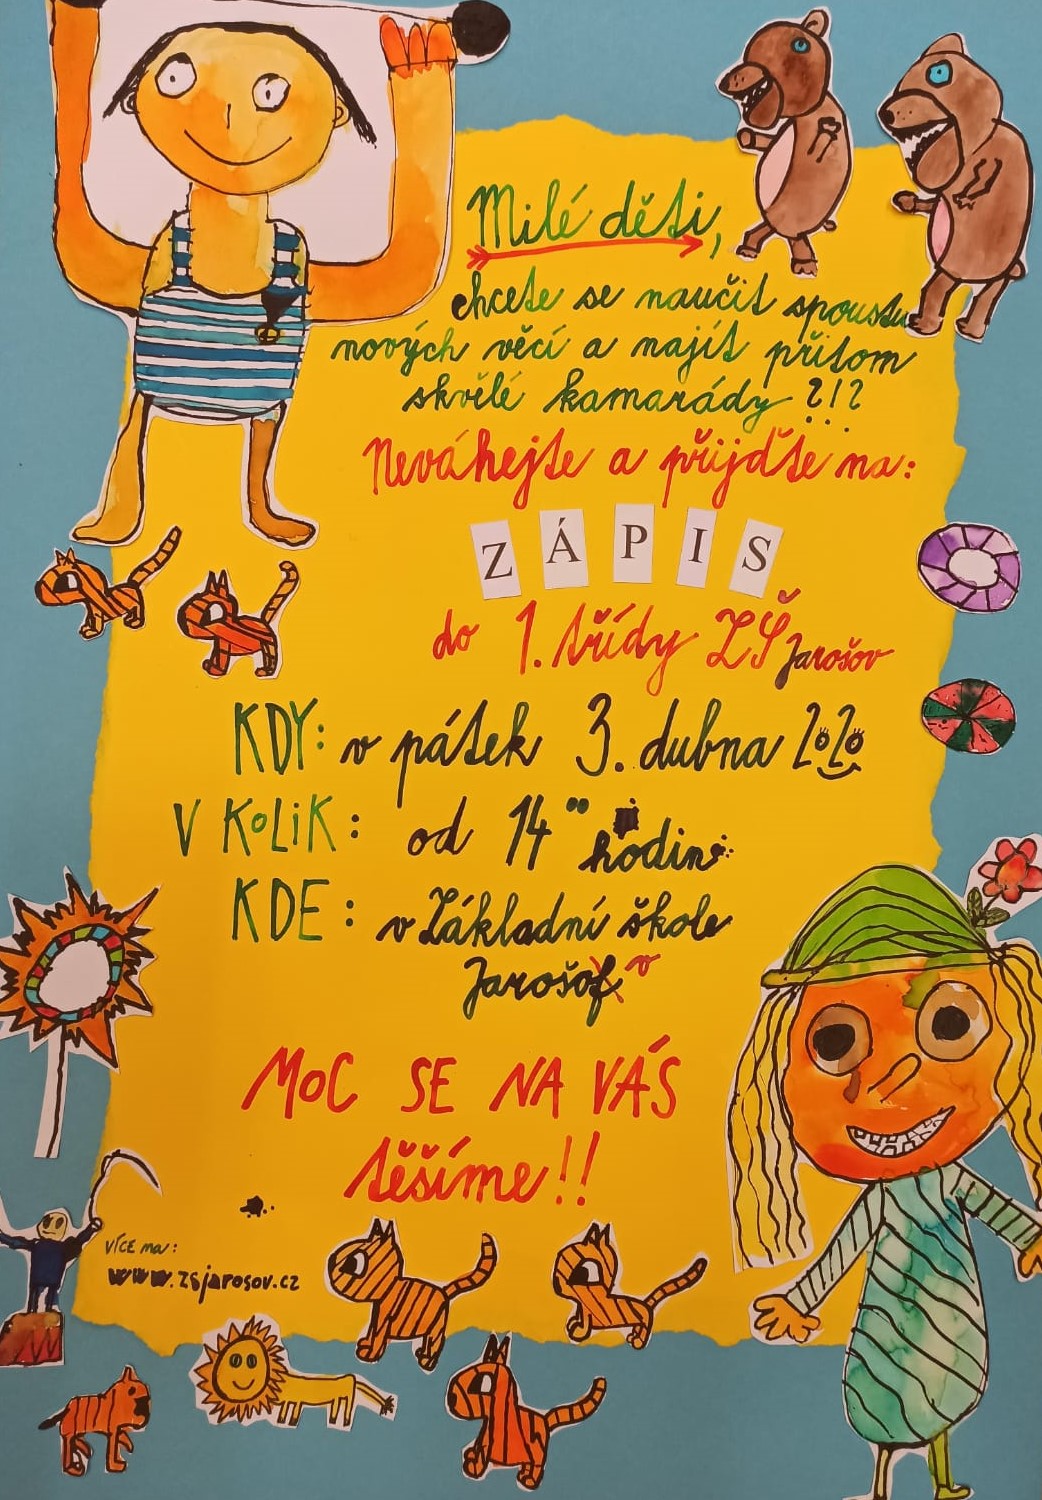 Milé děti,
chcete se naučit spoustu
nových věcí a najít přitom
skvělé kamarády ?!?
Neváhejte a přijďte na:
ZÁPIS
do 1. třídy ZŠ Jarošov
KDY: v pátek 3. dubna 2020
V KOLIK: od 14⁰⁰ hodin
KDE: v Základní škole
Jarošof v
MOC SE NA VÁS
těšíme!!
VÍCE na:
www.zsjarosov.cz